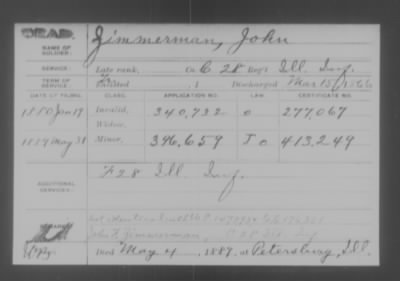 DEAD.
NAME OF SOLDIER: Zimmerman, John
SERVICE: Late rank, Co. C 28 Reg't Ill. Inf.
TERM OF SERVICE: Enlisted , 1 Discharged Mar 15, 1866
DATE OF FILING. CLASS. APPLICATION NO. LAW. CERTIFICATE NO.
1880 Jan 19 Invalid, 340,732 0 277,067
Widow,
1889 May 31 Minor, 396,659 J 0 413,249
ADDITIONAL SERVICES: F 28 Ill. Inf.
REMARKS:
John Zimmerman,
Died May 4, 1889, at Petersburg, Ill.